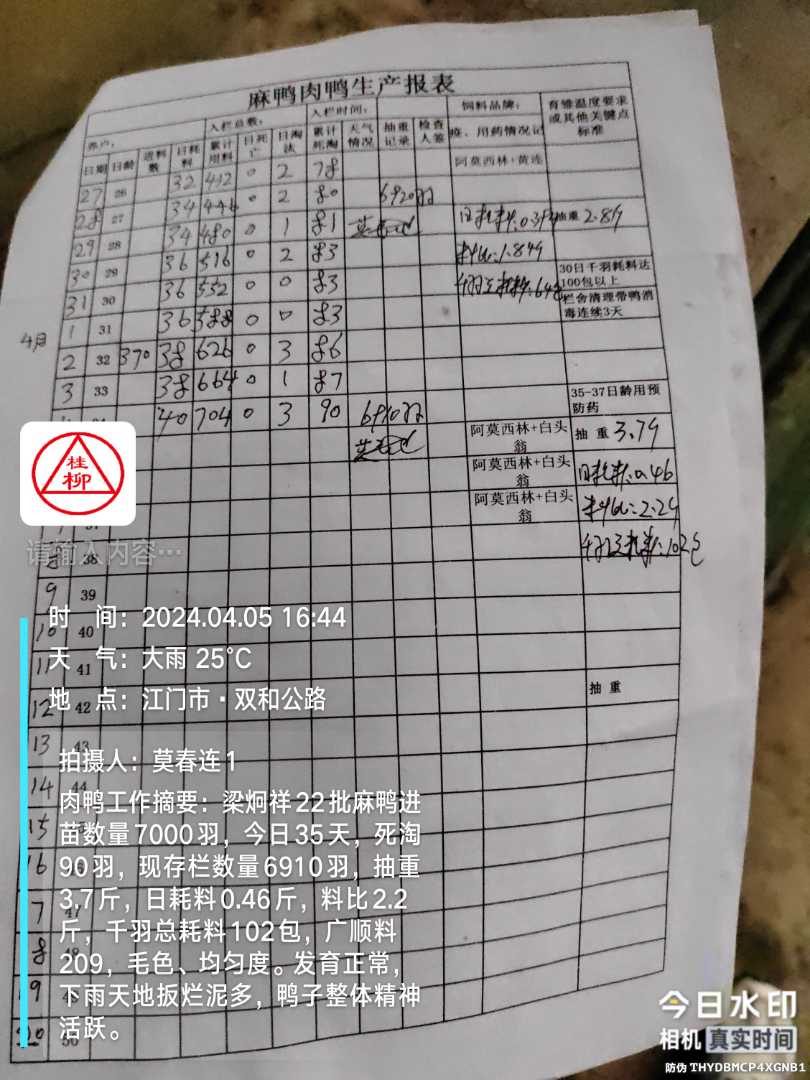 麻鸭肉鸭生产报表
养户： 入栏总数： 入栏时间： 饲料品牌： 育雏温度要求或其他关键点标准
日期 日龄 进料数 日耗料 累计用料 日死亡 日淘汰 累计死淘 天气情况 抽重记录 检查人签 疫、用药情况记
27 26 32 412 0 2 78 阿莫西林+黄连
28 27 34 446 0 2 80 6920羽
29 28 34 480 0 1 81 抽重 2.89
30 29 36 516 0 2 83
31 30 36 552 0 0 83 30日千羽耗料达100包以上
4月 1 31 36 588 0 0 83 栏舍清理带鸭消毒连续3天
2 32 370 38 626 0 3 86
3 33 38 664 0 1 87
40 704 0 3 90 6910羽 35-37日龄用预防药
阿莫西林+白头翁 抽重 3.79
阿莫西林+白头翁 日耗料:0.46
阿莫西林+白头翁 料比:2.29
8 38 102包
9 39
10 40
11 41
12 42 抽重
13 43
14 44
15
16
7 47
8 48
19
20 50
桂柳
请输入内容…
时 间：2024.04.05 16:44
天 气：大雨 25℃
地 点：江门市·双和公路
拍摄人：莫春连1
肉鸭工作摘要：梁炯祥22批麻鸭进
苗数量7000羽，今日35天，死淘
90羽，现存栏数量6910羽，抽重
3.7斤，日耗料0.46斤，料比2.2
斤，千羽总耗料102包，广顺料
209，毛色、均匀度。发育正常，
下雨天地扳烂泥多，鸭子整体精神
活跃。
今日水印
相机 真实时间
防伪 THYDBMCP4XGNB1